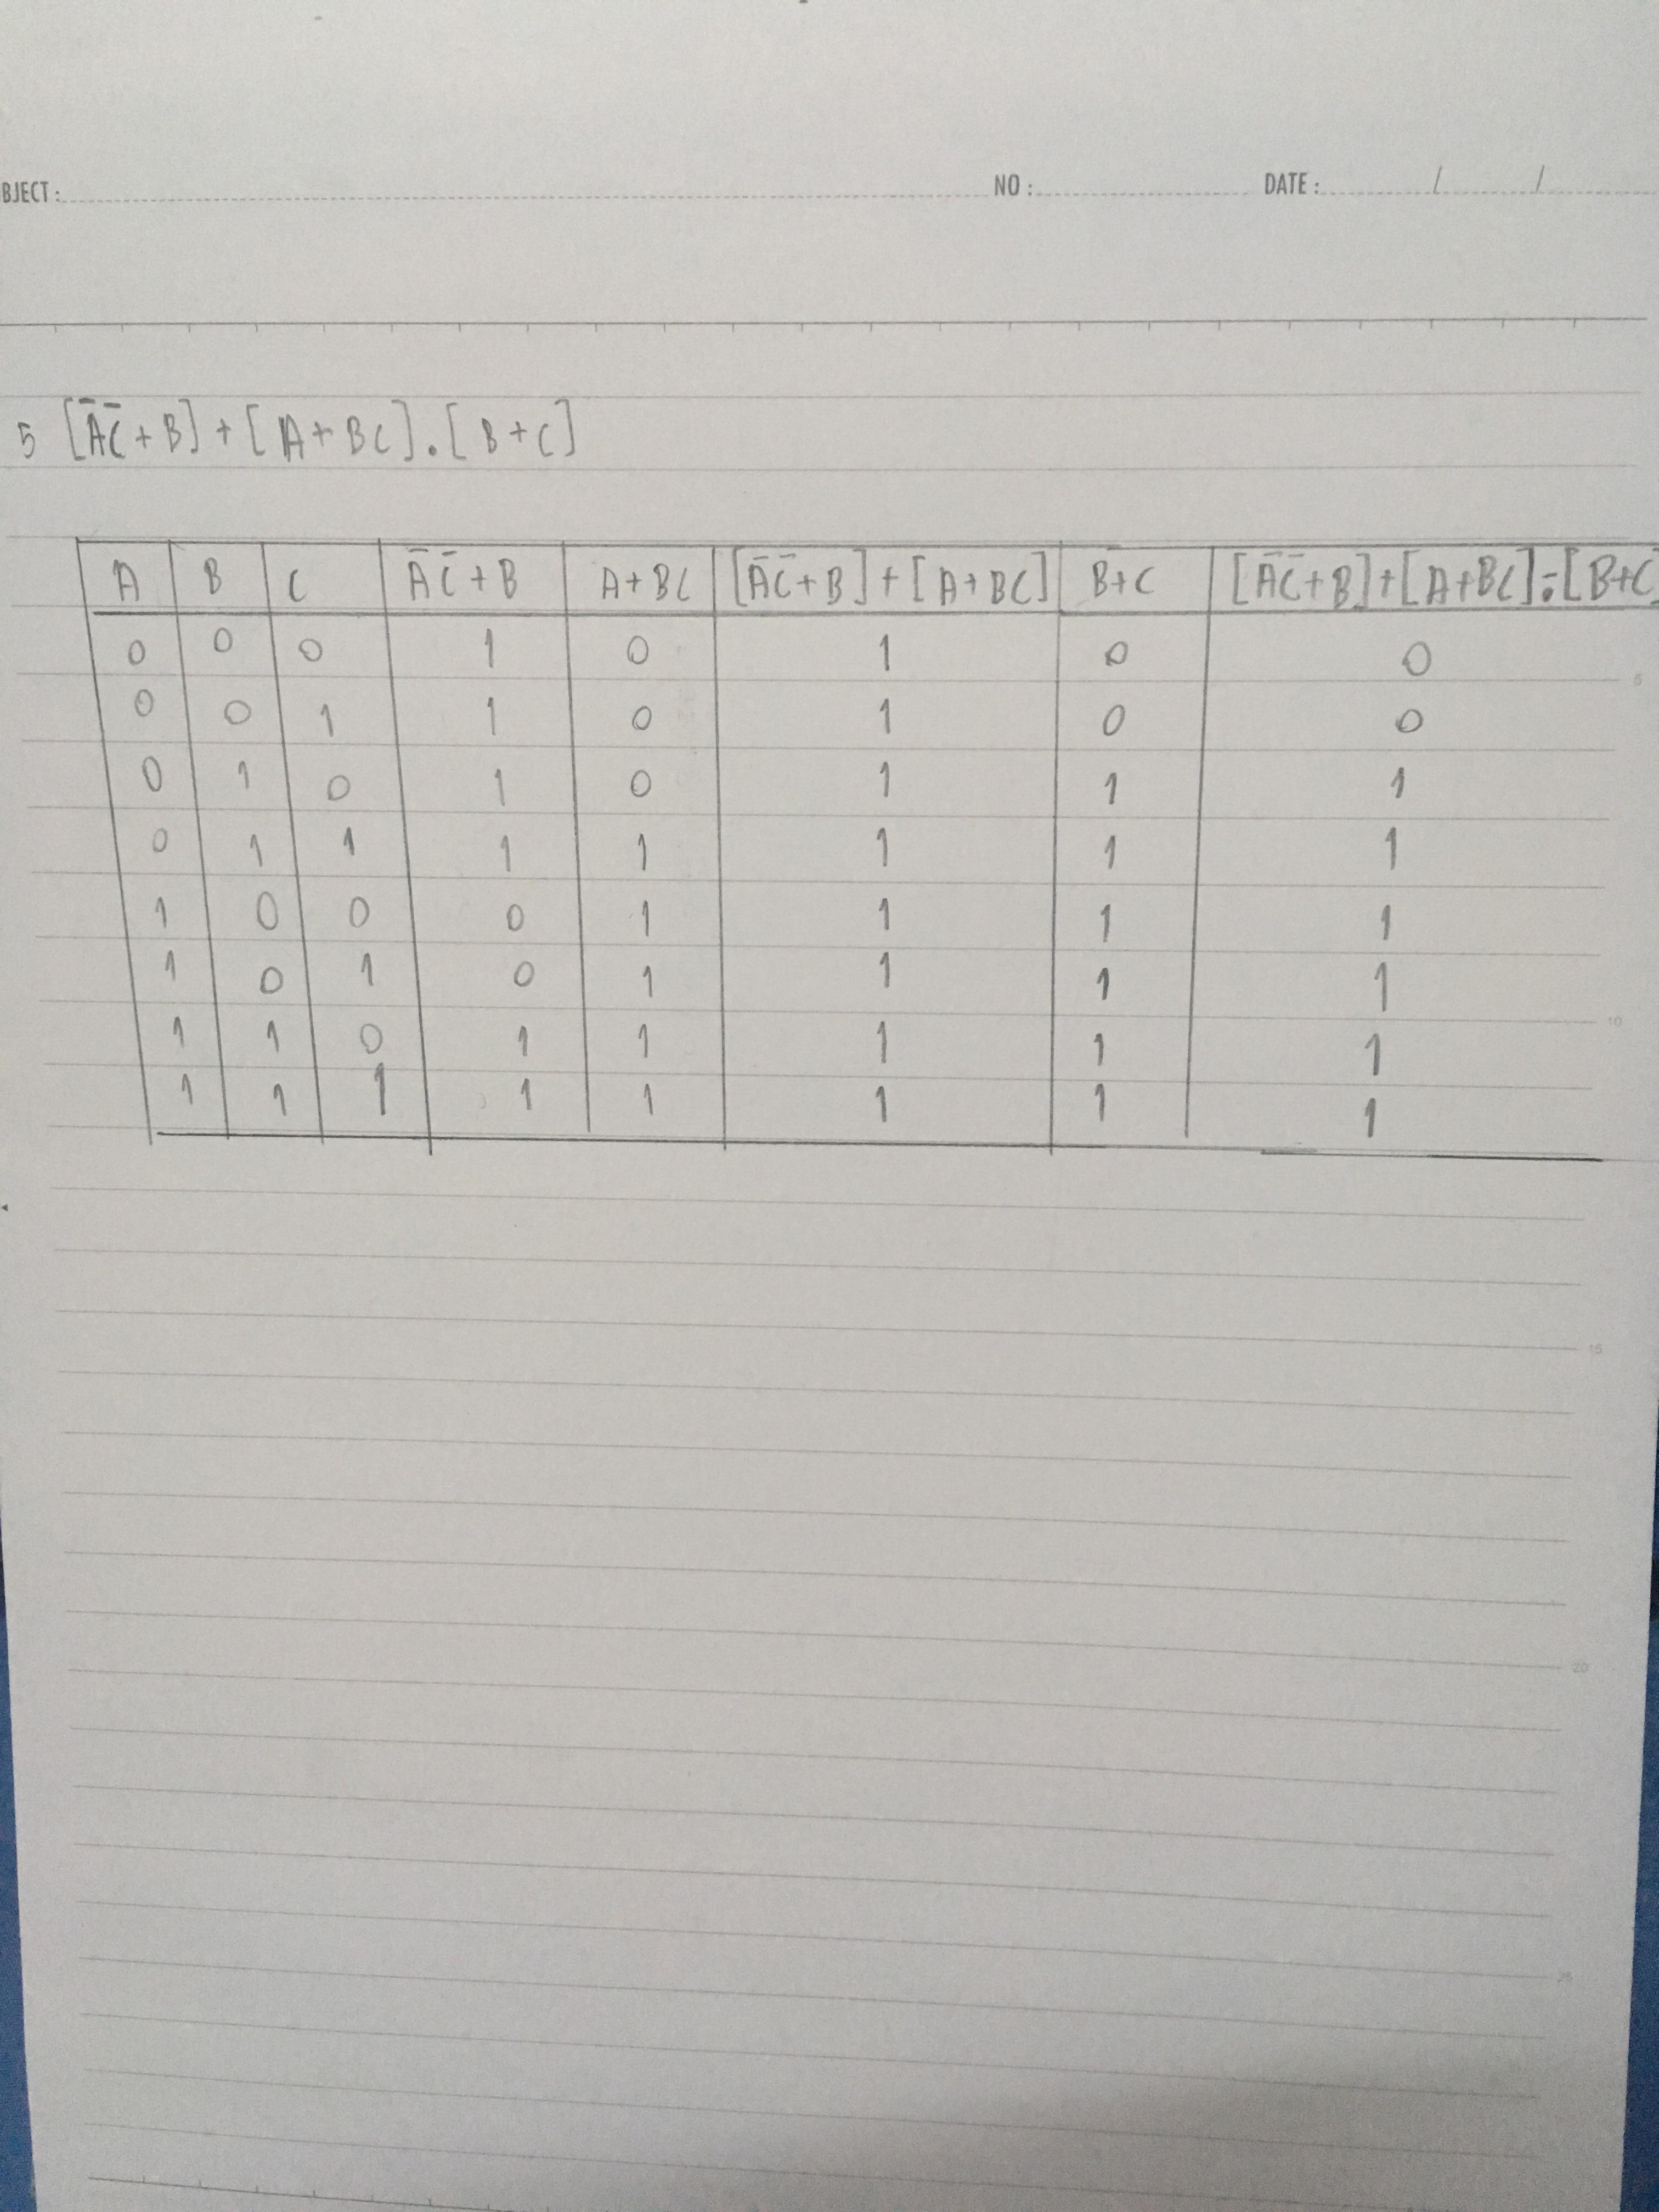 BJECT : NO : DATE : / /
5 [A̅C̅+B]+[A+BC].[B+C]
A B C A̅C̅+B A+BC [A̅C̅+B]+[A+BC] B+C [A̅C̅+B]+[A+BC].[B+C]
0 0 0 1 0 1 0 0
0 0 1 1 0 1 0 0
5
0 1 0 1 0 1 1 1
0 1 1 1 1 1 1 1
1 0 0 0 1 1 1 1
1 0 1 0 1 1 1 1
10
1 1 0 1 1 1 1 1
1 1 1 1 1 1 1 1
15
20
25